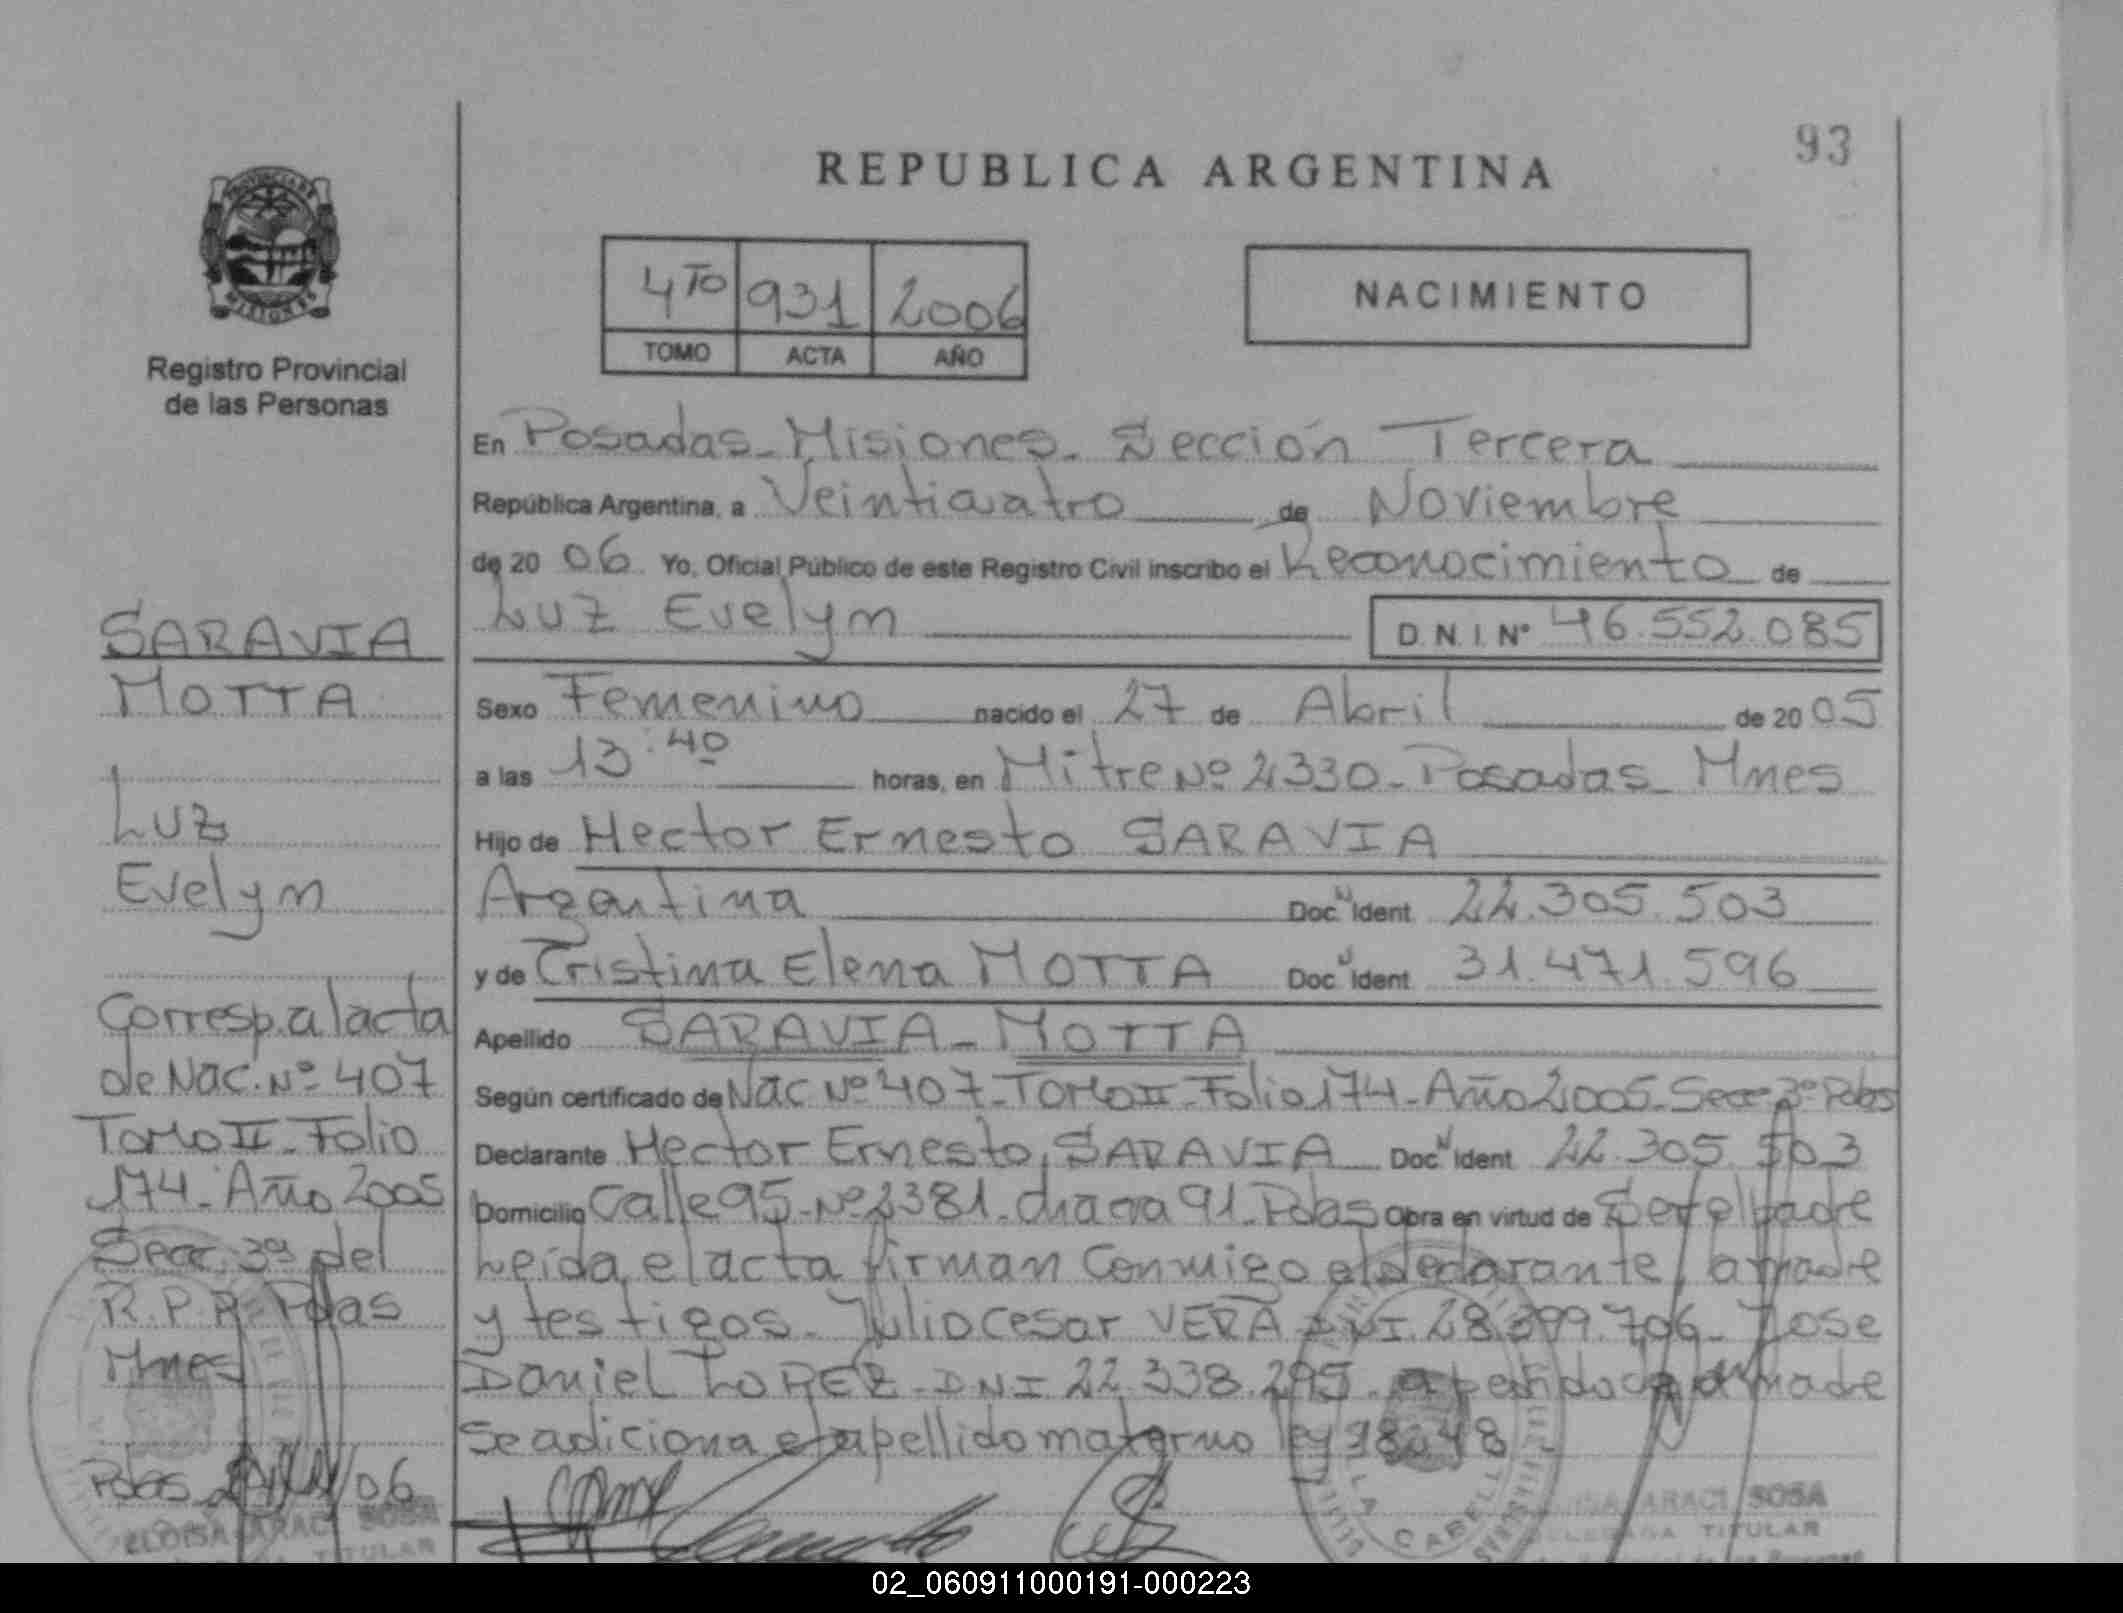 93
REPUBLICA ARGENTINA
PROVINCIA DE
MISIONES
Registro Provincial
de las Personas
4TO 931 2006
TOMO ACTA AÑO
NACIMIENTO
En Posadas - Misiones - Sección Tercera
República Argentina, a Veinticuatro de Noviembre
de 20 06 Yo, Oficial Público de este Registro Civil inscribo el Reconocimiento de
Luz Evelym D.N.I. Nº 46.552.085
Sexo Femenino nacido el 27 de Abril de 20 05
a las 13:40 horas, en Mitre Nº 2330 - Posadas - Mnes
Hijo de Hector Ernesto SARAVIA
Argentina Doc. Ident 22.305.503
y de Cristina Elena MOTTA Doc. Ident 31.471.596
Apellido SARAVIA - MOTTA
Según certificado de Nac Nº 407 - Tomo II - Folio 174 - Año 2005 - Secc 3º Pdas
Declarante Hector Ernesto SARAVIA Doc. Ident 22.305.503
Domicilio Calle 95 - Nº 2381 - chacra 91 - Pdas Obra en virtud de Ser el padre
Leída el acta firman Conmigo el declarante, la madre
y testigos - Julio cesar VERA DNI. 28.399.706 - Jose
Daniel LOPEZ - DNI 22.338.295 - a pedido de la madre
se adiciona el apellido materno ley 18248
SARAVIA
MOTTA
Luz
Evelym
Corresp. al acta
de Nac. Nº 407
Tomo II - Folio
174 - Año 2005
Secc. 3ª del
R.P.P. Pdas
Mnes
Pdas 06
ELOISA ARACI SOSA
TITULAR
ARACI SOSA
DELEGADA TITULAR
02_060911000191-000223